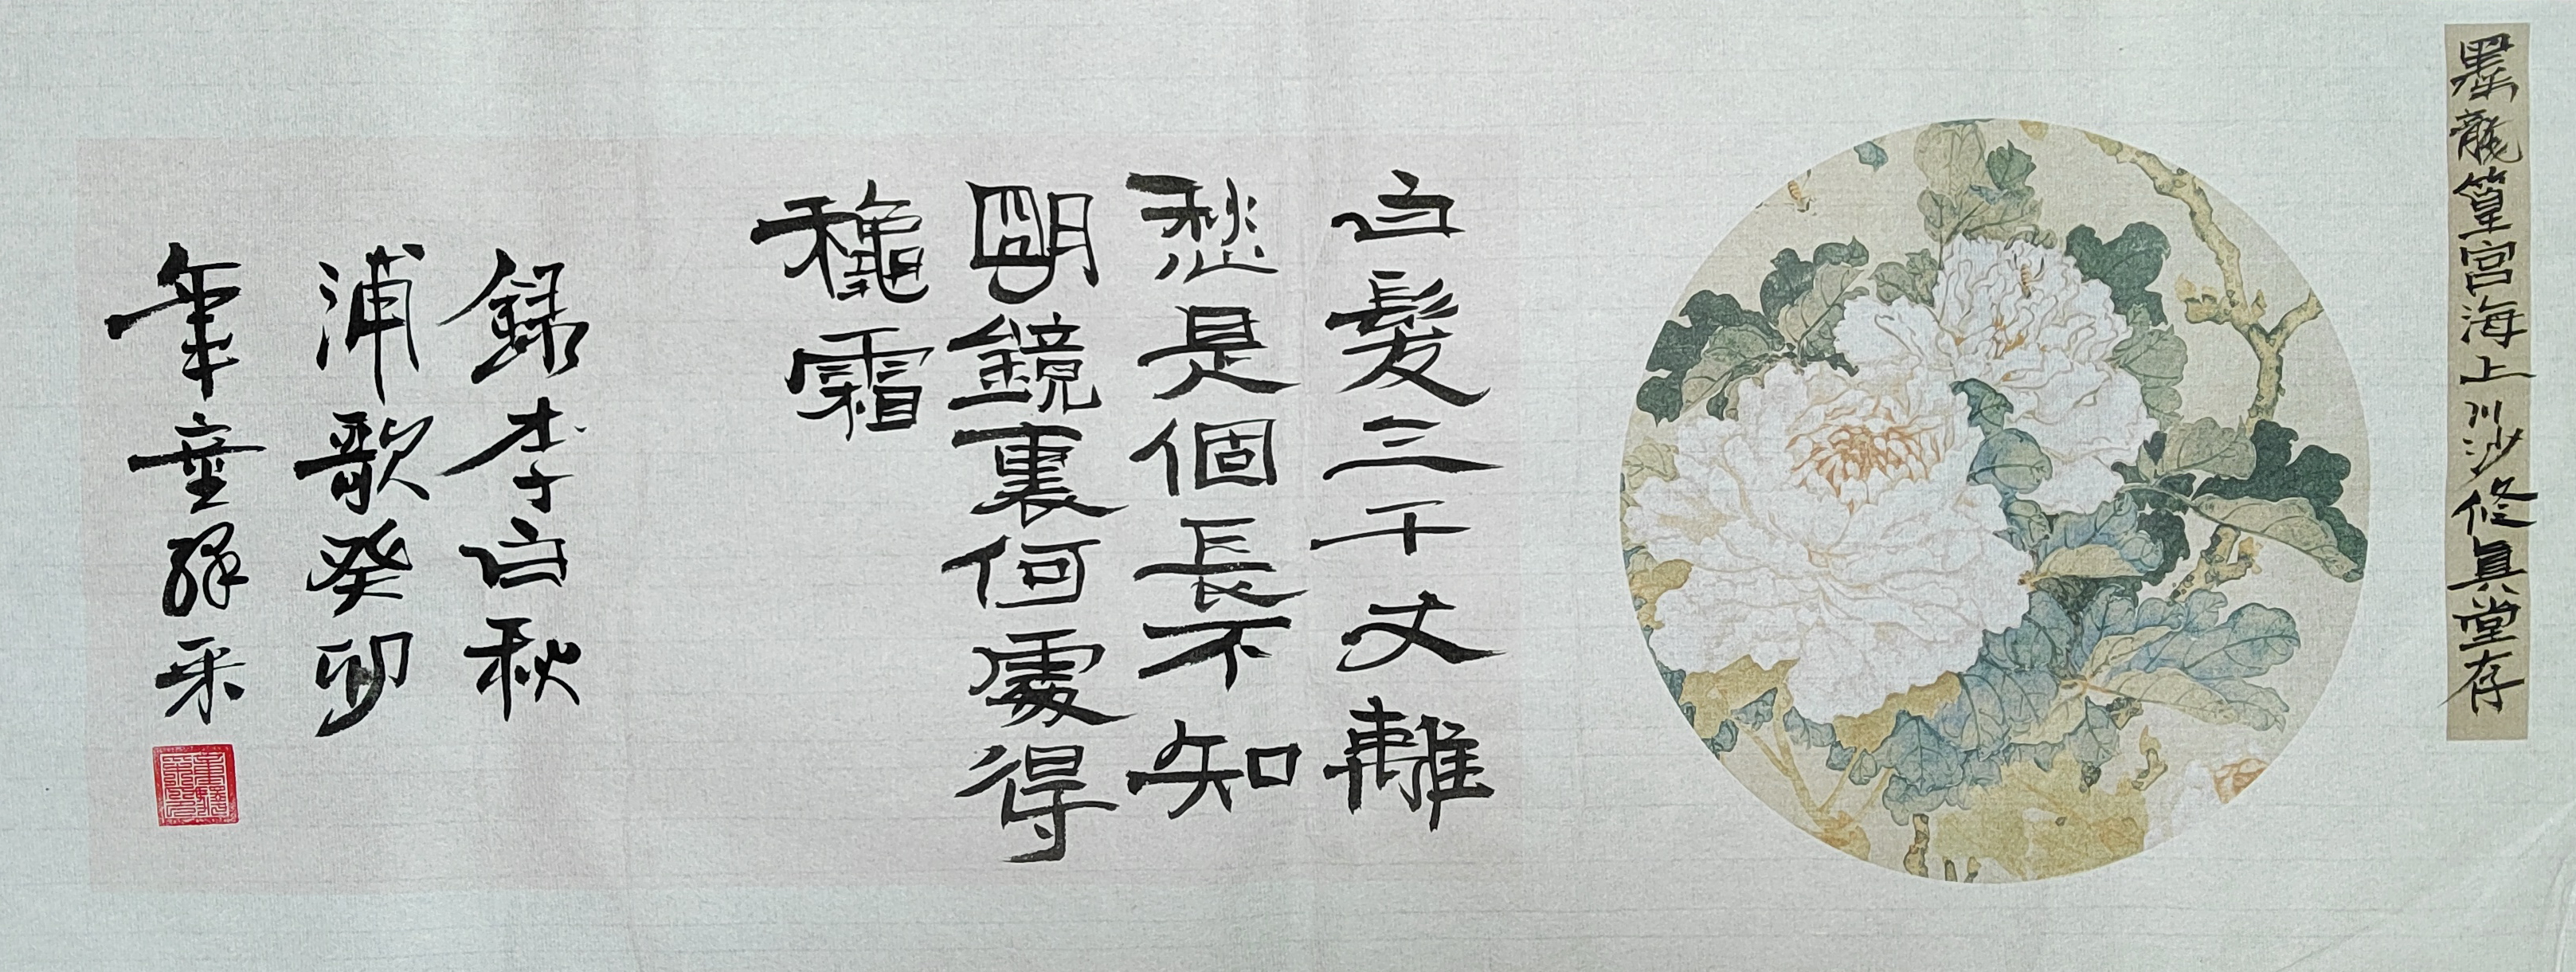 墨龍篁宮海上川沙修真堂存
白髮三千丈離
愁是個長不知
朙鏡裏何處得
穐霜
録李白秋
浦歌癸卯
年童采